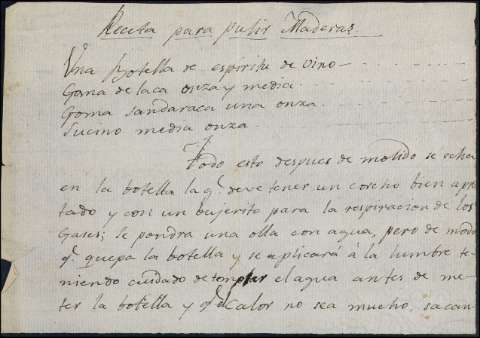 Receta para pulir Maderas
Una Botella de espiritu de vino
Gana de laca onza y media
Goma sandaraca una onza
Sucino media onza
Todo esto despues de molido se echa
en la botella la q.e deve tener un corcho bien apre
tado y con un bujerito para la respiracion de los
Gases; se pondra una olla con agua, pero de modo
q.e quepa la botella y se aplicará á la lumbre te-
niendo cuidado de templar el agua antes de me-
ter la botella y q.e el Calor no sea mucho, sacan-